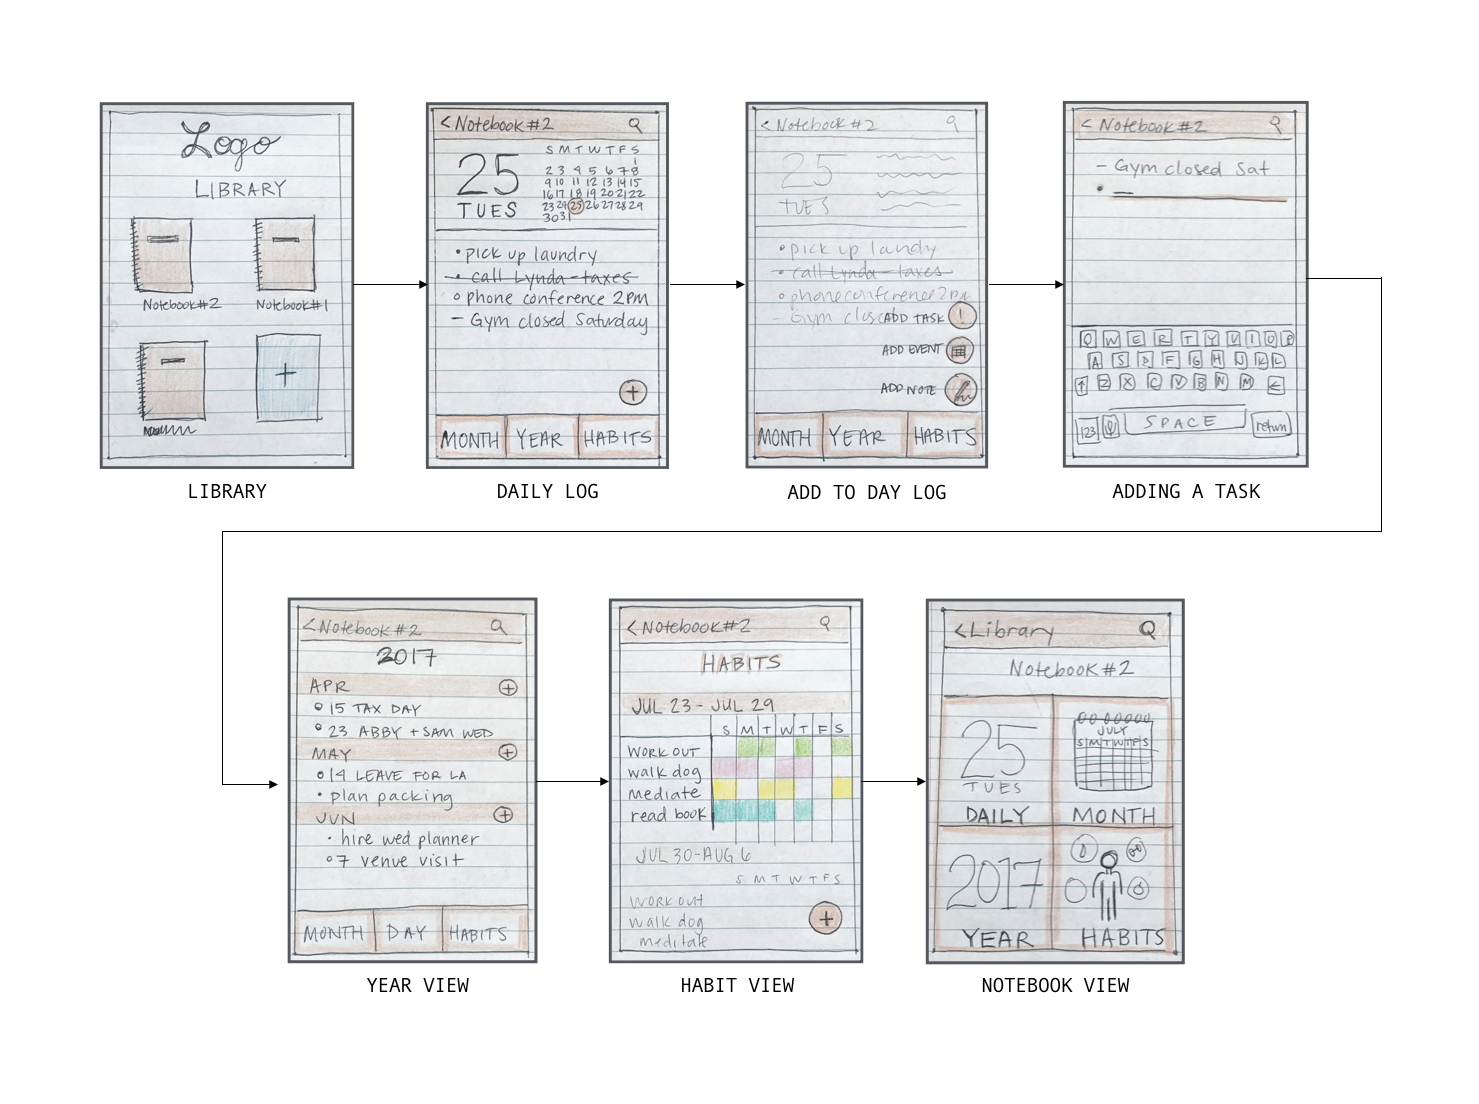 Logo
LIBRARY
Notebook#2
Notebook#1
LIBRARY
< Notebook #2
25
TUES
S M T W T F S
1
2 3 4 5 6 7 8
9 10 11 12 13 14 15
16 17 18 19 20 21 22
23 24 25 26 27 28 29
30 31
• pick up laundry
• call Lynda - taxes
o phone conference 2PM
— Gym closed Saturday
+
MONTH YEAR HABITS
DAILY LOG
< Notebook #2
25
TUES
• pick up laundy
• call Lynda - taxes
o phone conference 2pm
- Gym
ADD TASK !
ADD EVENT
ADD NOTE
MONTH YEAR HABITS
ADD TO DAY LOG
< Notebook #2
— Gym closed Sat
•
Q W E R T Y U I O P
A S D F G H J K L
↑ Z X C V B N M ←
123 SPACE return
ADDING A TASK
< Notebook #2
2017
APR +
o 15 TAX DAY
o 23 ABBY + SAM WED
MAY +
o 14 LEAVE FOR LA
• plan packing
JUN +
• hire wed planner
o 7 venue visit
MONTH DAY HABITS
YEAR VIEW
< Notebook #2
HABITS
JUL 23 - JUL 29
S M T W T F S
WORK OUT
walk dog
mediate
read book
JUL 30-AUG 6
S M T W T F S
WORK OUT
walk dog
meditate
+
HABIT VIEW
< Library
Notebook #2
25
TUES
DAILY
JULY
S M T W T F S
MONTH
2017
YEAR
HABITS
NOTEBOOK VIEW